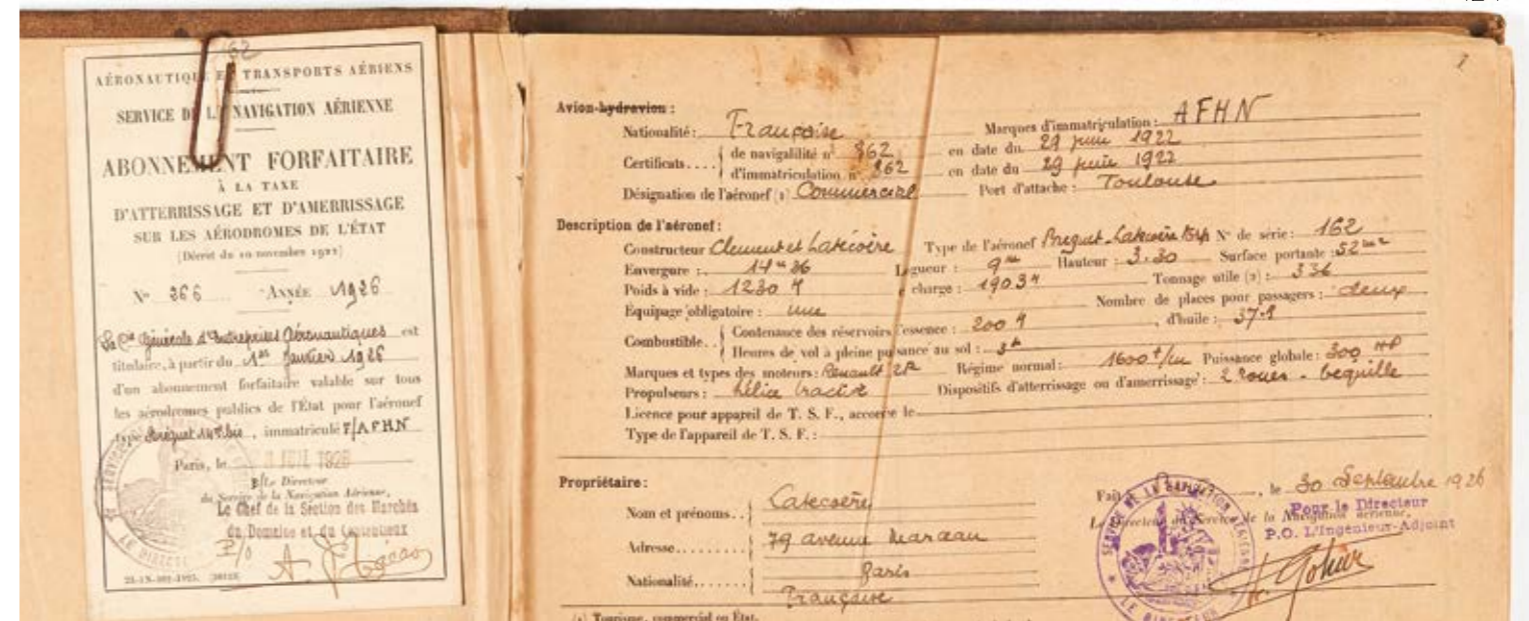 162
AÉRONAUTIQUE ET TRANSPORTS AÉRIENS
SERVICE DE LA NAVIGATION AÉRIENNE
ABONNEMENT FORFAITAIRE
À LA TAXE
D'ATTERRISSAGE ET D'AMERRISSAGE
SUR LES AÉRODROMES DE L'ÉTAT
(Décret du 10 novembre 1922)
N° 266 ANNÉE 1926
La Cie Générale d'Entreprises Aéronautiques est
titulaire, à partir du 1er Janvier 1926
d'un abonnement forfaitaire valable sur tous
les aérodromes publics de l'État pour l'aéronef
type Bréguet 14 Tbis, immatriculé F/AFHN
Paris, le JUIL 1926
P/Le Directeur
du Service de la Navigation Aérienne,
Le Chef de la Section des Marchés
du Domaine et du Contentieux
P/O
Avion-hydravion :
Nationalité : Française Marques d'immatriculation : AFHN
Certificats.... de navigabilité n° 862 en date du 29 juin 1922
d'immatriculation n° 862 en date du 29 juin 1922
Désignation de l'aéronef (1) Commercial Port d'attache : Toulouse
Description de l'aéronef :
Constructeur Clement et Latécoère Type de l'aéronef Breguet-Latécoère N° de série : 162
Envergure : 14m 36 Longueur : 9m Hauteur : 3.30 Surface portante : 52 m2
Poids à vide : 1230 K charge : 1903K Tonnage utile (2) : 336
Équipage obligatoire : une Nombre de places pour passagers : deux
Combustible.. Contenance des réservoirs d'essence : 200 , d'huile : 37
Heures de vol à pleine puissance au sol : 3h
Marques et types des moteurs : Renault Régime normal : 1600 t/m Puissance globale : 300 HP
Propulseurs : hélice tractive Dispositifs d'atterrissage ou d'amerrissage : 2 roues - bequille
Licence pour appareil de T. S. F., accordée le
Type de l'appareil de T. S. F. :
Propriétaire :
Nom et prénoms.. Latecoère
Adresse......... 79 avenue Marceau
Paris
Nationalité....... Française
Fait , le 30 Septembre 1926
Le Directeur du Service de la Navigation aérienne,
Pour le Directeur
P.O. L'Ingénieur-Adjoint
SERVICE DE LA NAVIGATION AÉRIENNE
LE DIRECTEUR
(1) Tourisme, commercial ou État.